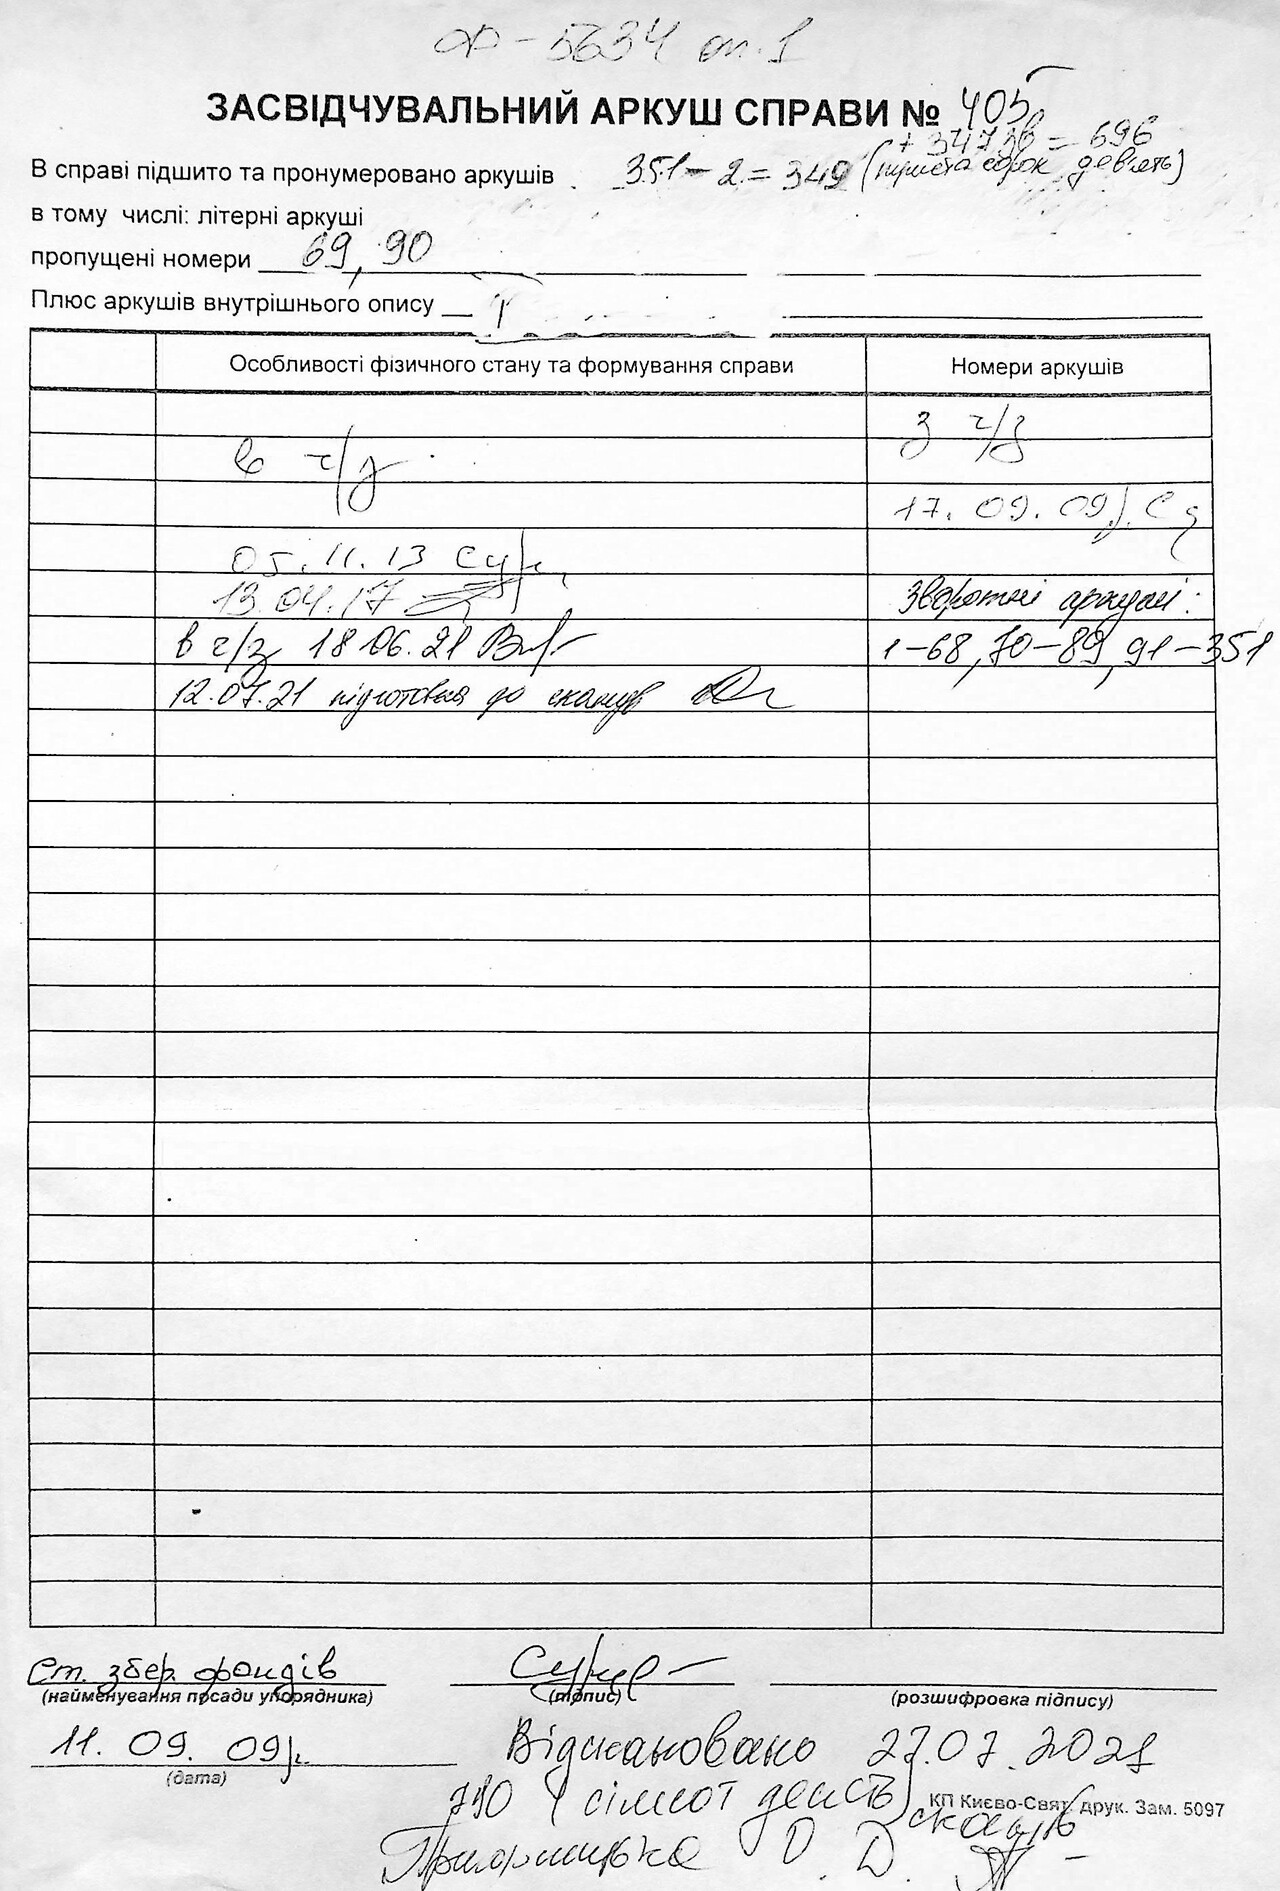 Ф-5634 оп.1
ЗАСВІДЧУВАЛЬНИЙ АРКУШ СПРАВИ № 405
+ 347зв = 696
В справі підшито та пронумеровано аркушів 351-2=349 (триста сорок девять)
в тому числі: літерні аркуші
пропущені номери 69, 90
Плюс аркушів внутрішнього опису
Особливості фізичного стану та формування справи Номери аркушів
з ч/з
в ч/з
17.09.09р.
05.11.13
13.04.17 Зворотні аркуші:
в ч/з 18.06.21 1-68, 70-89, 91-351
12.07.21 підготовка до сканув
Ст. збер. фондів
(найменування посади упорядника) (підпис) (розшифровка підпису)
11.09.09р. Відскановано 27.07.2021
(дата)
790 (сімсот
КП Києво-Свят. друк. Зам. 5097
сканів
О. Д.